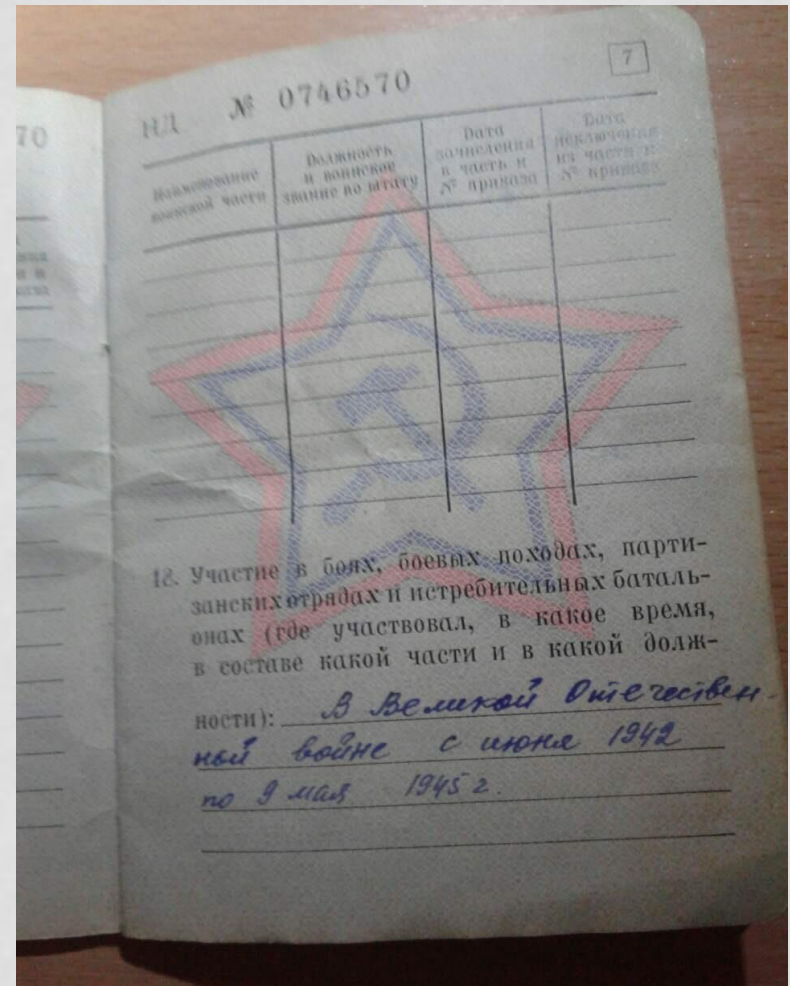 70
7
НД № 0746570
Наименование
воинской части
Должность
и воинское
звание по штату
Дата
зачисления
в часть и
№ приказа
Дата
исключения
из части и
№ приказа
18. Участие в боях, боевых походах, парти-
занских отрядах и истребительных баталь-
онах (где участвовал, в какое время,
в составе какой части и в какой долж-
ности): В Великой Отечествен-
ной войне с июня 1942
по 9 мая 1945 г.